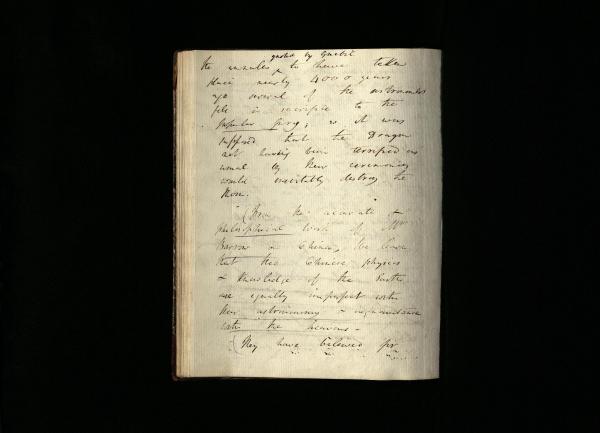 quoted by Gaubil
the annales ^ to have taken
place nearly 4000 years
ago several of the astronomers
fell a sacrifice to the
popular fury; as it was
supposed that the Dragon
not having been terrified as
usual by their ceremonies
would inevitably destroy the
Moon.
(From the accurate &
philosophical work of Mr
Barrow on China, we learn
that the Chinese physics
& knowledge of the Earth
are equally imperfect with
their astronomy & acquaintance
with the heavens -
(They have believed for